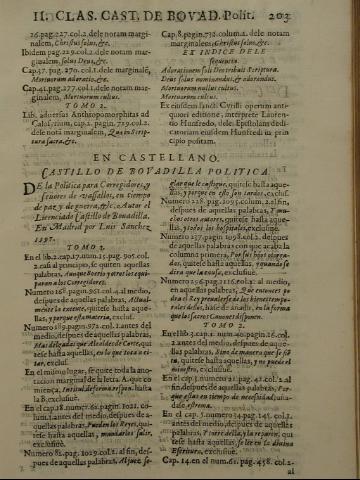 II. CLAS. CAST. DE BOVAD. Polit. 203
26. pag. 227. col. 2. dele notam margi-
nalem, Christus solus, &c.
Ibidem pag. 229. col. 2. dele notam mar-
ginalem, solus Deus, &c.
Cap. 37. pag. 270. col. 1. dele marginalē,
Mortuorum adoratio, &c.
Cap. 41. pag. 277. col. 1. dele notam mar-
ginalem, Mortuorum cultus.
TOMO 2.
Lib. aduersus Anthropomorphitas ad
Calosyrium, cap. 1. pagin. 729. col. 2.
dele notā marginalem, Quæ in Scrip-
tura sacra, &c.
Cap. 8. pagin. 732. colum. 2. dele notam
marginalem, Christus solus, &c.
EX INDICE DELE
sequentia.
Adorationem soli Deo tribuit Scriptura.
Deus solus nominandus, & adorandus.
Mortuorum nullus cultus.
Mortuorum cultus.
Ex eiusdem sancti Cyrilli operum anti-
quiori editione, interprete Lauren-
tio Humfredo, dele Epistolam dedi-
catoriam eiusdem Hunfredi in prin-
cipio positam.
EN CASTELLANO.
CASTILLO DE BOVADILLA POLITICA.
DE la Politica para Corregidores, y
señores de vassallos, en tiempo
de paz, y de guerra, &c. Autor el
Licenciado Castillo de Bouadilla.
En Madrid por Luis Sanchez
1597.
TOMO 1.
En el lib. 2. cap. 17. num. 25. pag. 906. col.
2. casi al principio, se quiten aquellas
palabras,
para a los Corregidores.
Numero 168. pagin. 961. col. 4. al medio,
despues de aquellas palabras, Actual-
mente la exemte, quitese hasta aque-
llas, y porque esta materia, exclus.
Numero 189. pagin. 972. col. 1. antes del
medio, despues de aquellas palabras,
Mas delgado que Alcalde de Corte, qui-
tese hasta aquellas, en lo que toca a ci-
tar, exclusiuè.
En el mismo lugar, se quite toda la ano-
tacion marginal de la letra A. que co-
miença, hasta la
B, exclusiuè.
En el cap. 18. numer. 61. pagin. 1021. co-
lum. 1. antes del medio, despues de a-
quellas palabras, Pueden los Reyes, qui-
tese hasta aquellas, mandarles salir,
exclusiuè.
Numero 82. pag. 1029. col. 2. al fin, des-
pues de aquellas palabras,
glar que se castigue, quitese hasta aque-
llas, y porque en esto son tardos, exclus.
Numero 228. pag. 1095. colum. 2. al fin,
despues de aquellas palabras, Y mu-
chos otros autores, quitese hasta aque-
llas, y todos los hospitales, exclusiuè.
Numero 237. pagin. 1098. col. 2. despues
de aquellas palabras con que acaba la
columna primera, Por sus hijos abogra-
dos, quitese hasta aquellas, y quando se
diria que la causa, exclusiuè.
Numero 256. pag. 1116. col. 2. al medio,
en aquellas palabras, Que entonces po-
dra el Rey prevalerse de los bienes tempo-
rales dellas, hase de añadir, en la forma
que los sacros Canones disponen.
TOMO 2.
En el lib. 3. cap. 1. num. 40. pagin. 26. col.
2. antes del medio, despues de aque-
llas palabras, Sino de manera que se siē-
ta, quitese hasta aquellas, y no puede el
ministro, exclusiuè.
En el cap. 3. numer. 21. pag. 42. col. 2. al
fin, despues de aquellas palabras, Por-
que estas en tiempo de necessidad, aña-
dase, estrema.
En el cap. 5. numero 14. pag. 145. col. 1.
antes del medio, despues de aquellas
palabras, Y torre della, y la reparen, qui-
tese hasta aquellas, se lee en la diuina
Escritura, exclusiuè.
Cap. 14. en el num. 61. pag. 458. col. 2.
al